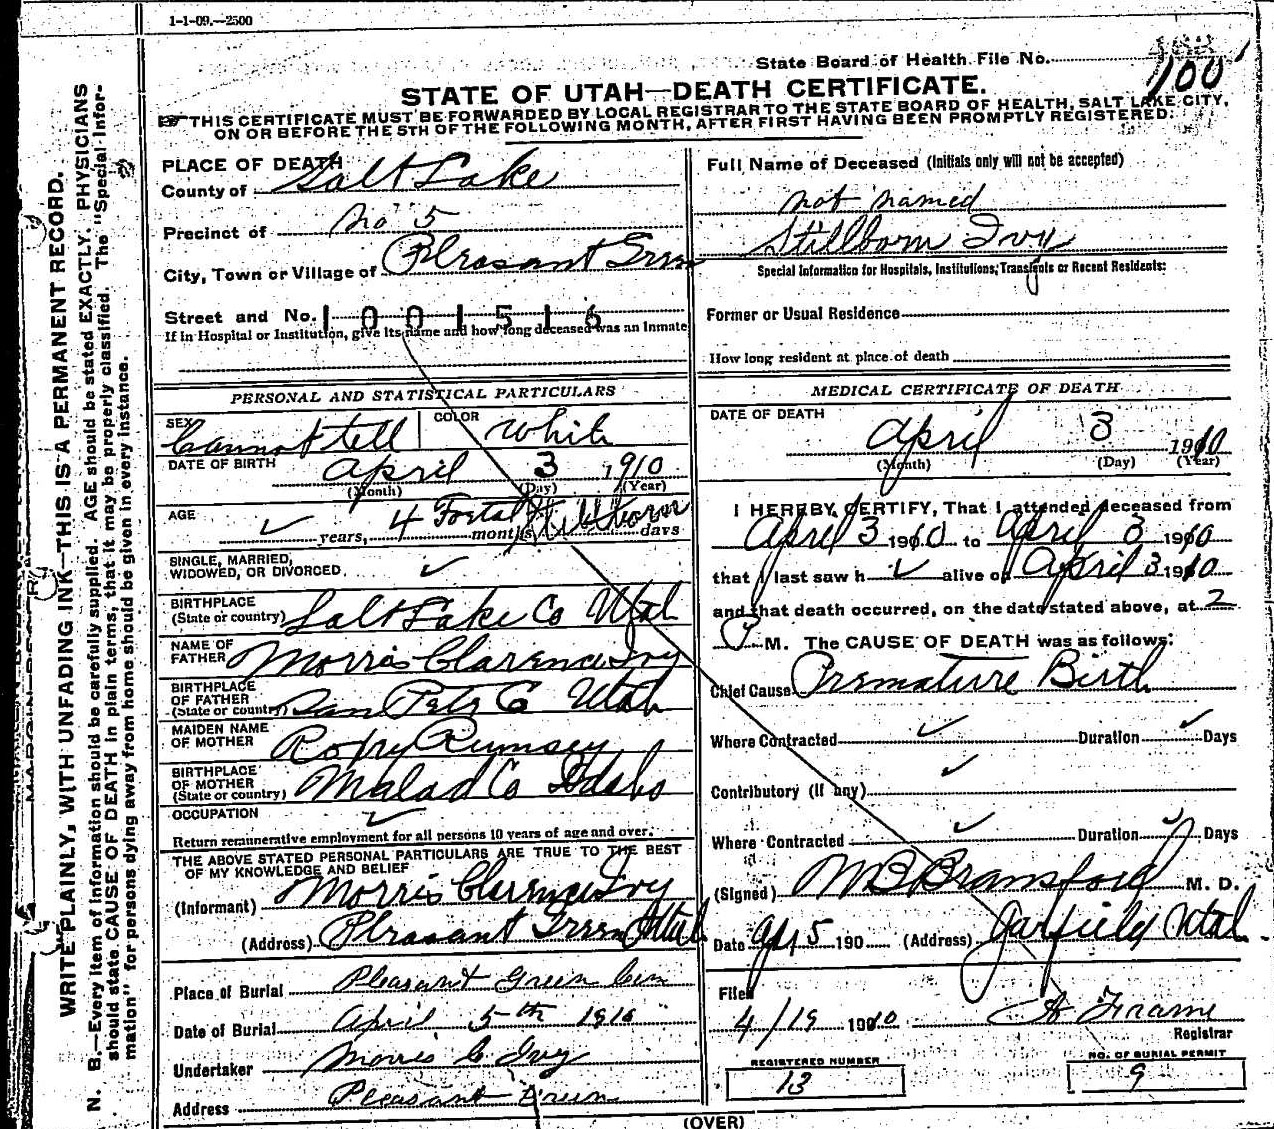 1-1-09.—2500
State Board of Health File No.
100
STATE OF UTAH—DEATH CERTIFICATE.
THIS CERTIFICATE MUST BE FORWARDED BY LOCAL REGISTRAR TO THE STATE BOARD OF HEALTH, SALT LAKE CITY,
ON OR BEFORE THE 5TH OF THE FOLLOWING MONTH, AFTER FIRST HAVING BEEN PROMPTLY REGISTERED.
WRITE PLAINLY, WITH UNFADING INK—THIS IS A PERMANENT RECORD.
N. B.—Every item of information should be carefully supplied. AGE should be stated EXACTLY. PHYSICIANS
should state CAUSE OF DEATH in plain terms, that it may be properly classified. The "Special Infor-
mation" for persons dying away from home should be given in every instance.
PLACE OF DEATH
County of Salt Lake
Precinct of No 5
City, Town or Village of Pleasant Green
Street and No. 1001516
If in Hospital or Institution, give its name and how long deceased was an Inmate
Full Name of Deceased (Initials only will not be accepted)
not named
Stillborn Ivy
Special Information for Hospitals, Institutions, Transients or Recent Residents:
Former or Usual Residence
How long resident at place of death
PERSONAL AND STATISTICAL PARTICULARS
SEX Cannot tell COLOR White
DATE OF BIRTH April 3 1910
(Month) (Day) (Year)
AGE ✓ years, 4 Foetal months Stillborn days
SINGLE, MARRIED,
WIDOWED, OR DIVORCED ✓
BIRTHPLACE
(State or country) Salt Lake Co Utah
NAME OF
FATHER Morris Clarence Ivy
BIRTHPLACE
OF FATHER
(State or country) San Pete Co Utah
MAIDEN NAME
OF MOTHER Rumsey
BIRTHPLACE
OF MOTHER
(State or country) Malad Co Idaho
OCCUPATION ✓
Return remunerative employment for all persons 10 years of age and over.
THE ABOVE STATED PERSONAL PARTICULARS ARE TRUE TO THE BEST
OF MY KNOWLEDGE AND BELIEF
(Informant) Morris Clarence Ivy
(Address) Pleasant Green Utah
Place of Burial Pleasant Green Cem
Date of Burial April 5th 1910
Undertaker Morris C Ivy
Address Pleasant Green
MEDICAL CERTIFICATE OF DEATH
DATE OF DEATH
April 3 1910
(Month) (Day) (Year)
I HEREBY CERTIFY, That I attended deceased from
April 3 1910 to April 3 1910
that I last saw h ✓ alive on April 3 1910
and that death occurred, on the date stated above, at 2
P M. The CAUSE OF DEATH was as follows:
Chief Cause Premature Birth
Where Contracted ✓ Duration ✓ Days
Contributory (if any) ✓
Where Contracted ✓ Duration ✓ Days
(Signed) M B Bransford M. D.
Date Apr 5 190 (Address) Garfield Utah
Filed
4/19 1910 A Frame
Registrar
REGISTERED NUMBER
13
NO. OF BURIAL PERMIT
9
(OVER)